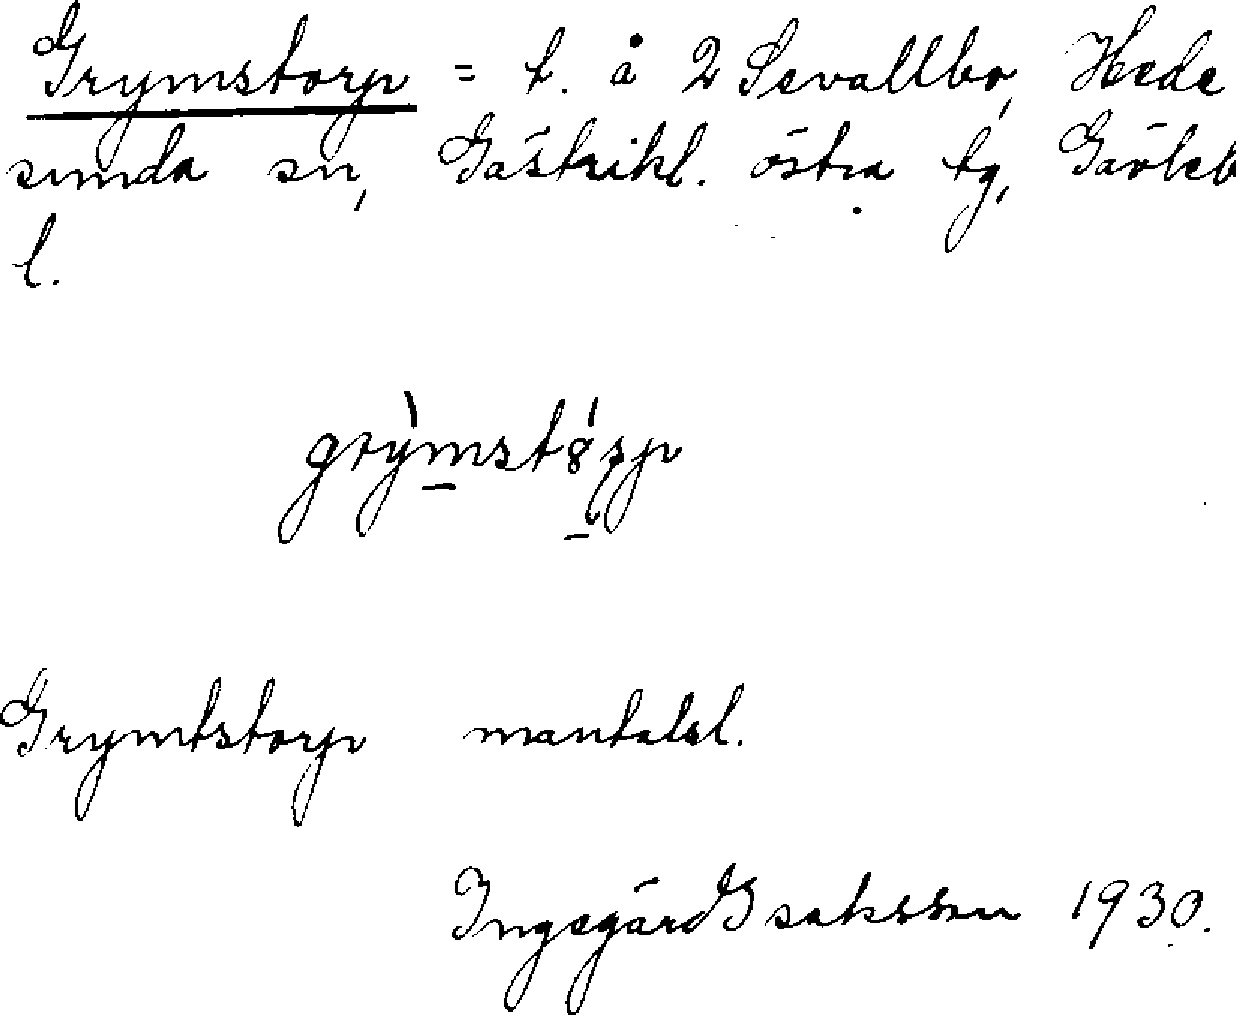 Grymstorp = t. å 2 Sevallbo, Hede
sunda sn, Gästrikl. östra tg, Gävleb
l.
Grymtstorp mantalsl.
Ingegärd Isaksson 1930.